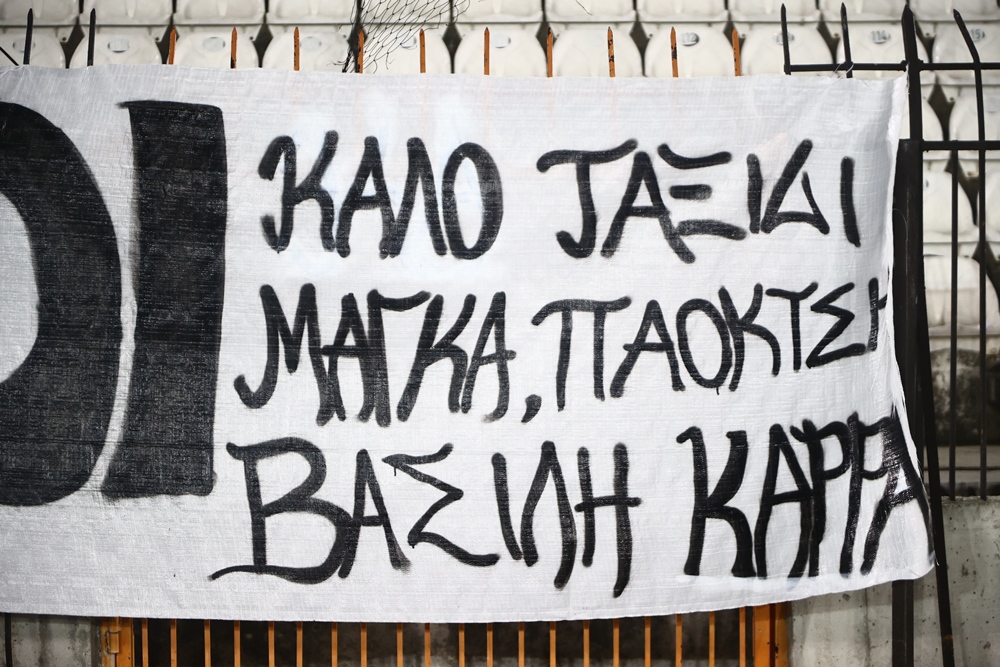 ΟΙ
ΚΑΛΟ ΤΑΞΙΔΙ
ΜΑΓΚΑ, ΠΑΟΚΤΣΗ
ΒΑΣΙΛΗ ΚΑΡΡΑ